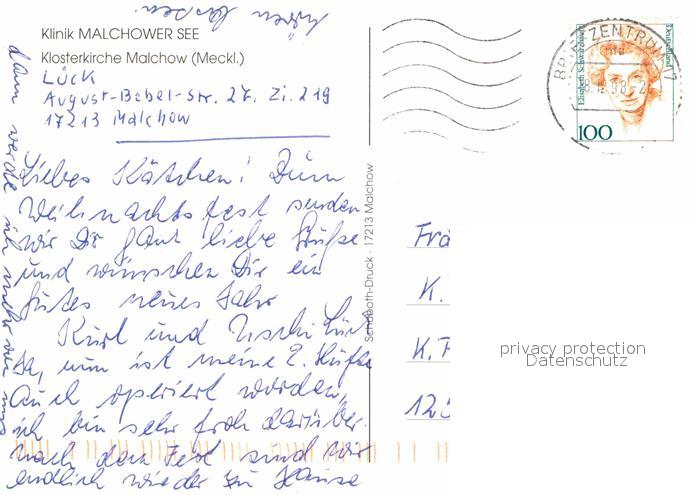 Klinik MALCHOWER SEE
Klosterkirche Malchow (Meckl.)
Lück
August-Bebel-Str. 27. Zi. 219
17213 Malchow
Liebes Kätchen! Zum
Weihnachtsfest senden
wir Dir ganz liebe Grüße
und wünschen Dir ein
gutes neues Jahr
Kurt und Uschi Lück
Ja, nun ist meine 2. Hüfte
auch operiert worden,
ich bin sehr froh darüber.
nach dem Fest sind wir
endlich wieder zu Hause
dann werde ich mehr von uns
hören lassen.
Schöboth-Druck · 17213 Malchow
BRIEFZENTRUM 17
98-2
Elisabeth Schwarzhaupt
Deutschland
100
Fra
K.
K.
12
privacy protection
Datenschutz